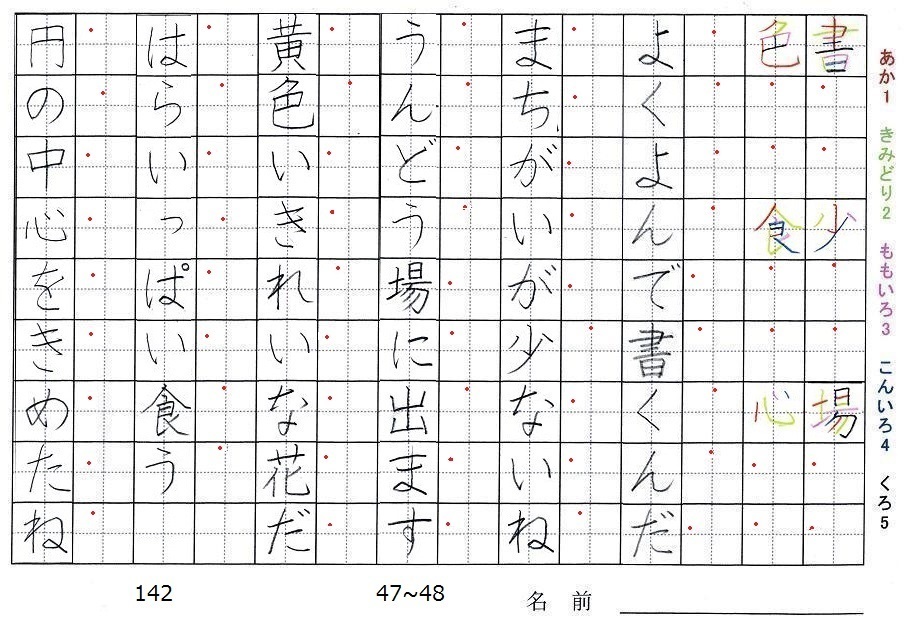 あか1 きみどり2 ももいろ3 こんいろ4 くろ5
書少場
色食心
よくよんで書くんだ
まちがいが少ないね
うんどう場に出ます
黄色いきれいな花だ
はらいっぱい食う
円の中心をきめたね
142
47~48
名前